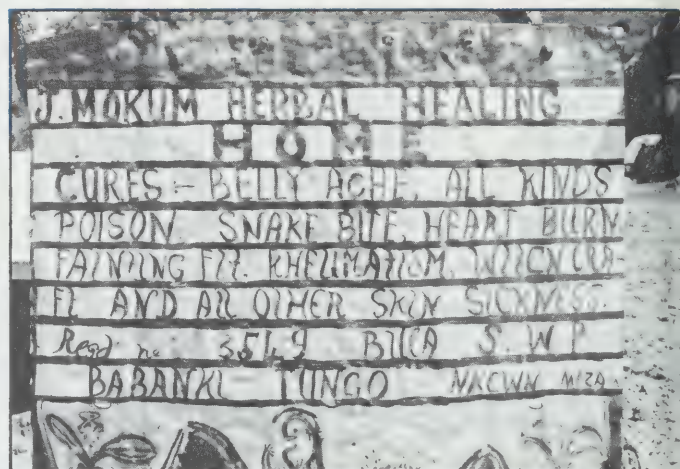 J. MOKUM HERBAL HEALING
HOME
CURES – BELLY ACHE, ALL KINDS
POISON, SNAKE BITE, HEART BURN
FAINTING FIT. RHEUMATISM, WITCH CRA-
FT AND ALL OTHER SKIN SICKNESS.
Regd no BUEA S. W P
BABANKI TUNGO